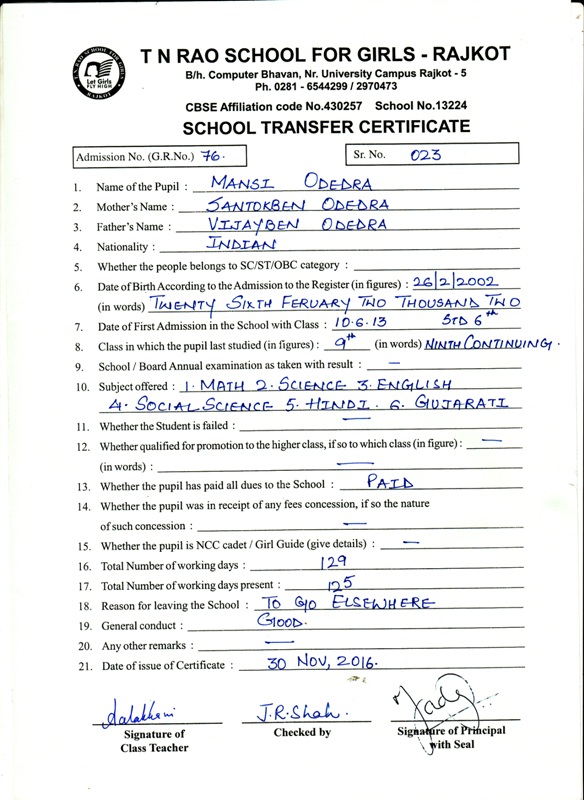 T N RAO SCHOOL FOR GIRLS - RAJKOT
T N RAO SCHOOL FOR GIRLS
Let Girls
FLY HIGH
RAJKOT
B/h. Computer Bhavan, Nr. University Campus Rajkot - 5
Ph. 0281 - 6544299 / 2970473
CBSE Affiliation code No.430257 School No.13224
SCHOOL TRANSFER CERTIFICATE
Admission No. (G.R.No.) 76.
Sr. No. 023
1. Name of the Pupil : MANSI ODEDRA
2. Mother's Name : SANTOKBEN ODEDRA
3. Father's Name : VIJAYBEN ODEDRA
4. Nationality : INDIAN
5. Whether the people belongs to SC/ST/OBC category :
6. Date of Birth According to the Admission to the Register (in figures) : 26/2/2002
(in words) TWENTY SIXTH FERUARY TWO THOUSAND TWO
7. Date of First Admission in the School with Class : 10.6.13 STD 6th
8. Class in which the pupil last studied (in figures) : 9th (in words) NINTH CONTINUING.
9. School / Board Annual examination as taken with result : —
10. Subject offered : 1. MATH 2. SCIENCE 3. ENGLISH
4. SOCIAL SCIENCE 5. HINDI. 6. GUJARATI
11. Whether the Student is failed : —
12. Whether qualified for promotion to the higher class, if so to which class (in figure) : —
(in words) : —
13. Whether the pupil has paid all dues to the School : PAID
14. Whether the pupil was in receipt of any fees concession, if so the nature
of such concession : —
15. Whether the pupil is NCC cadet / Girl Guide (give details) : —
16. Total Number of working days : 129
17. Total Number of working days present : 125
18. Reason for leaving the School : TO GO ELSEWHERE
19. General conduct : GOOD.
20. Any other remarks : —
21. Date of issue of Certificate : 30 NOV, 2016.
J.R.Shah.
Signature of
Class Teacher
Checked by
Signature of Principal
with Seal